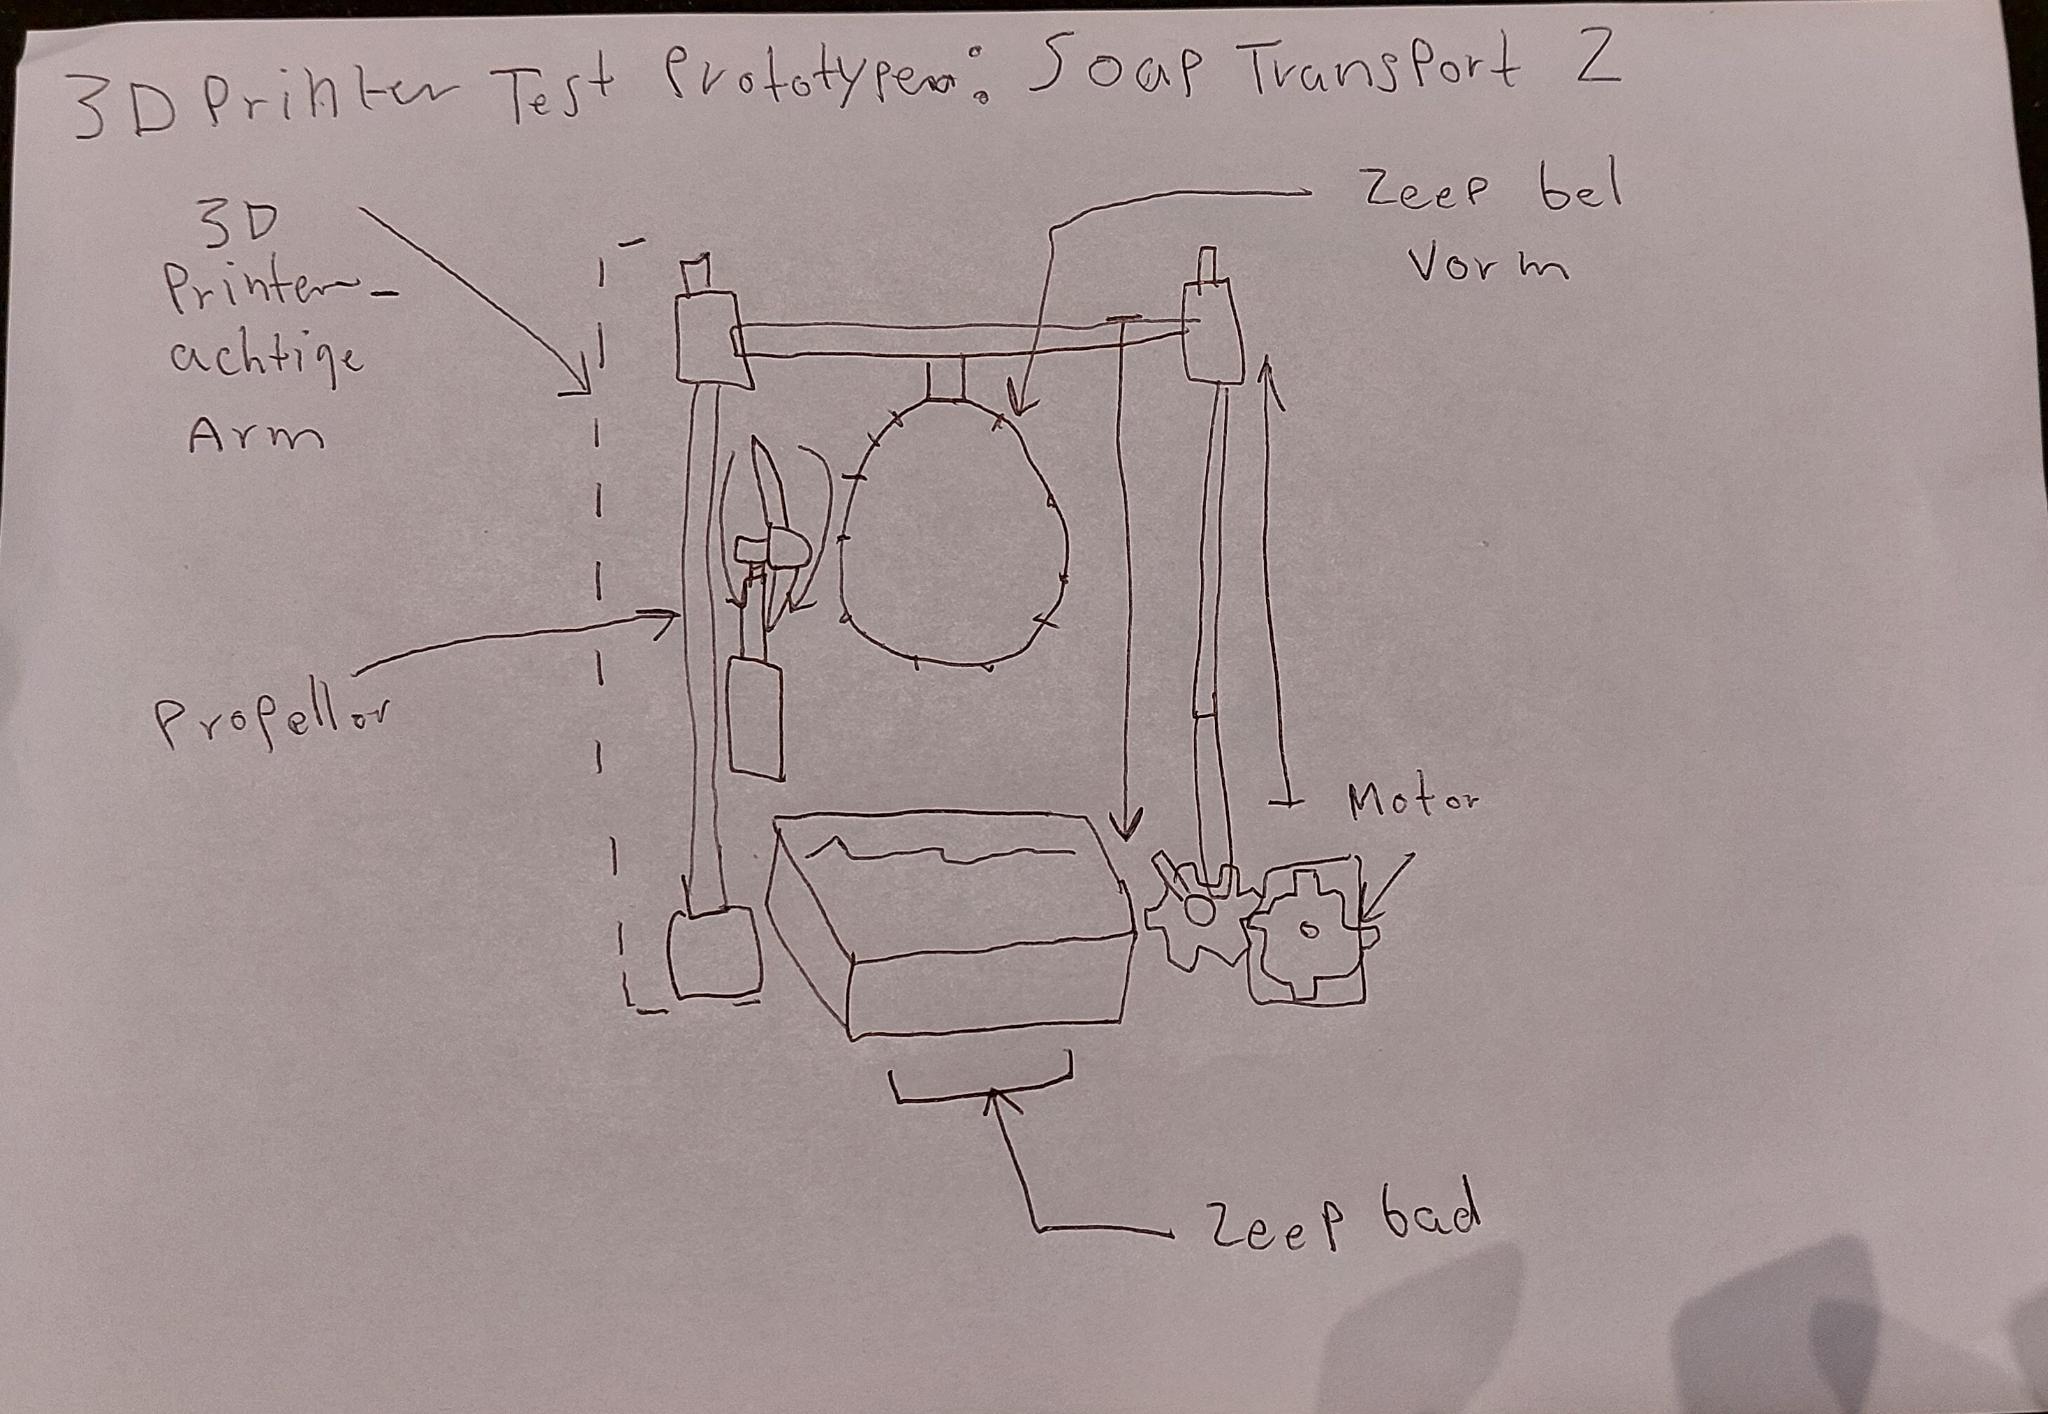 3D Printer Test Prototypen: Soap Transport 2
3D
Printer-
achtige
Arm
Zeep bel
Vorm
Propellor
Motor
Zeep bad